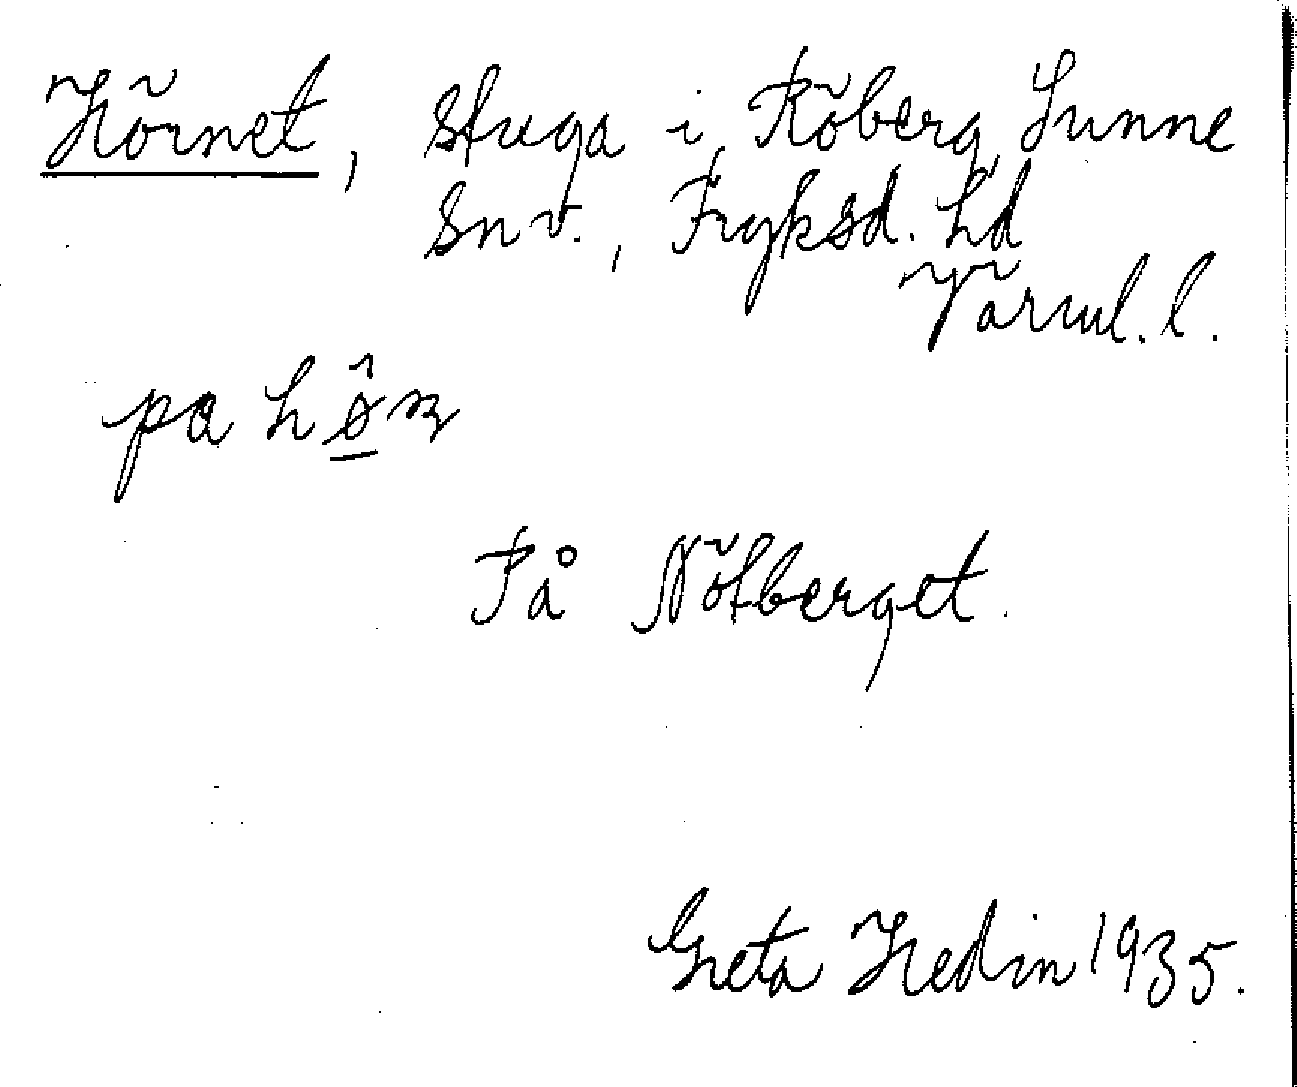 Hörnet, stuga i Röberg, Sunne
snv., Fryksd. hd
Värml. l.
pa
På Nötberget.
Greta Hedin 1935.